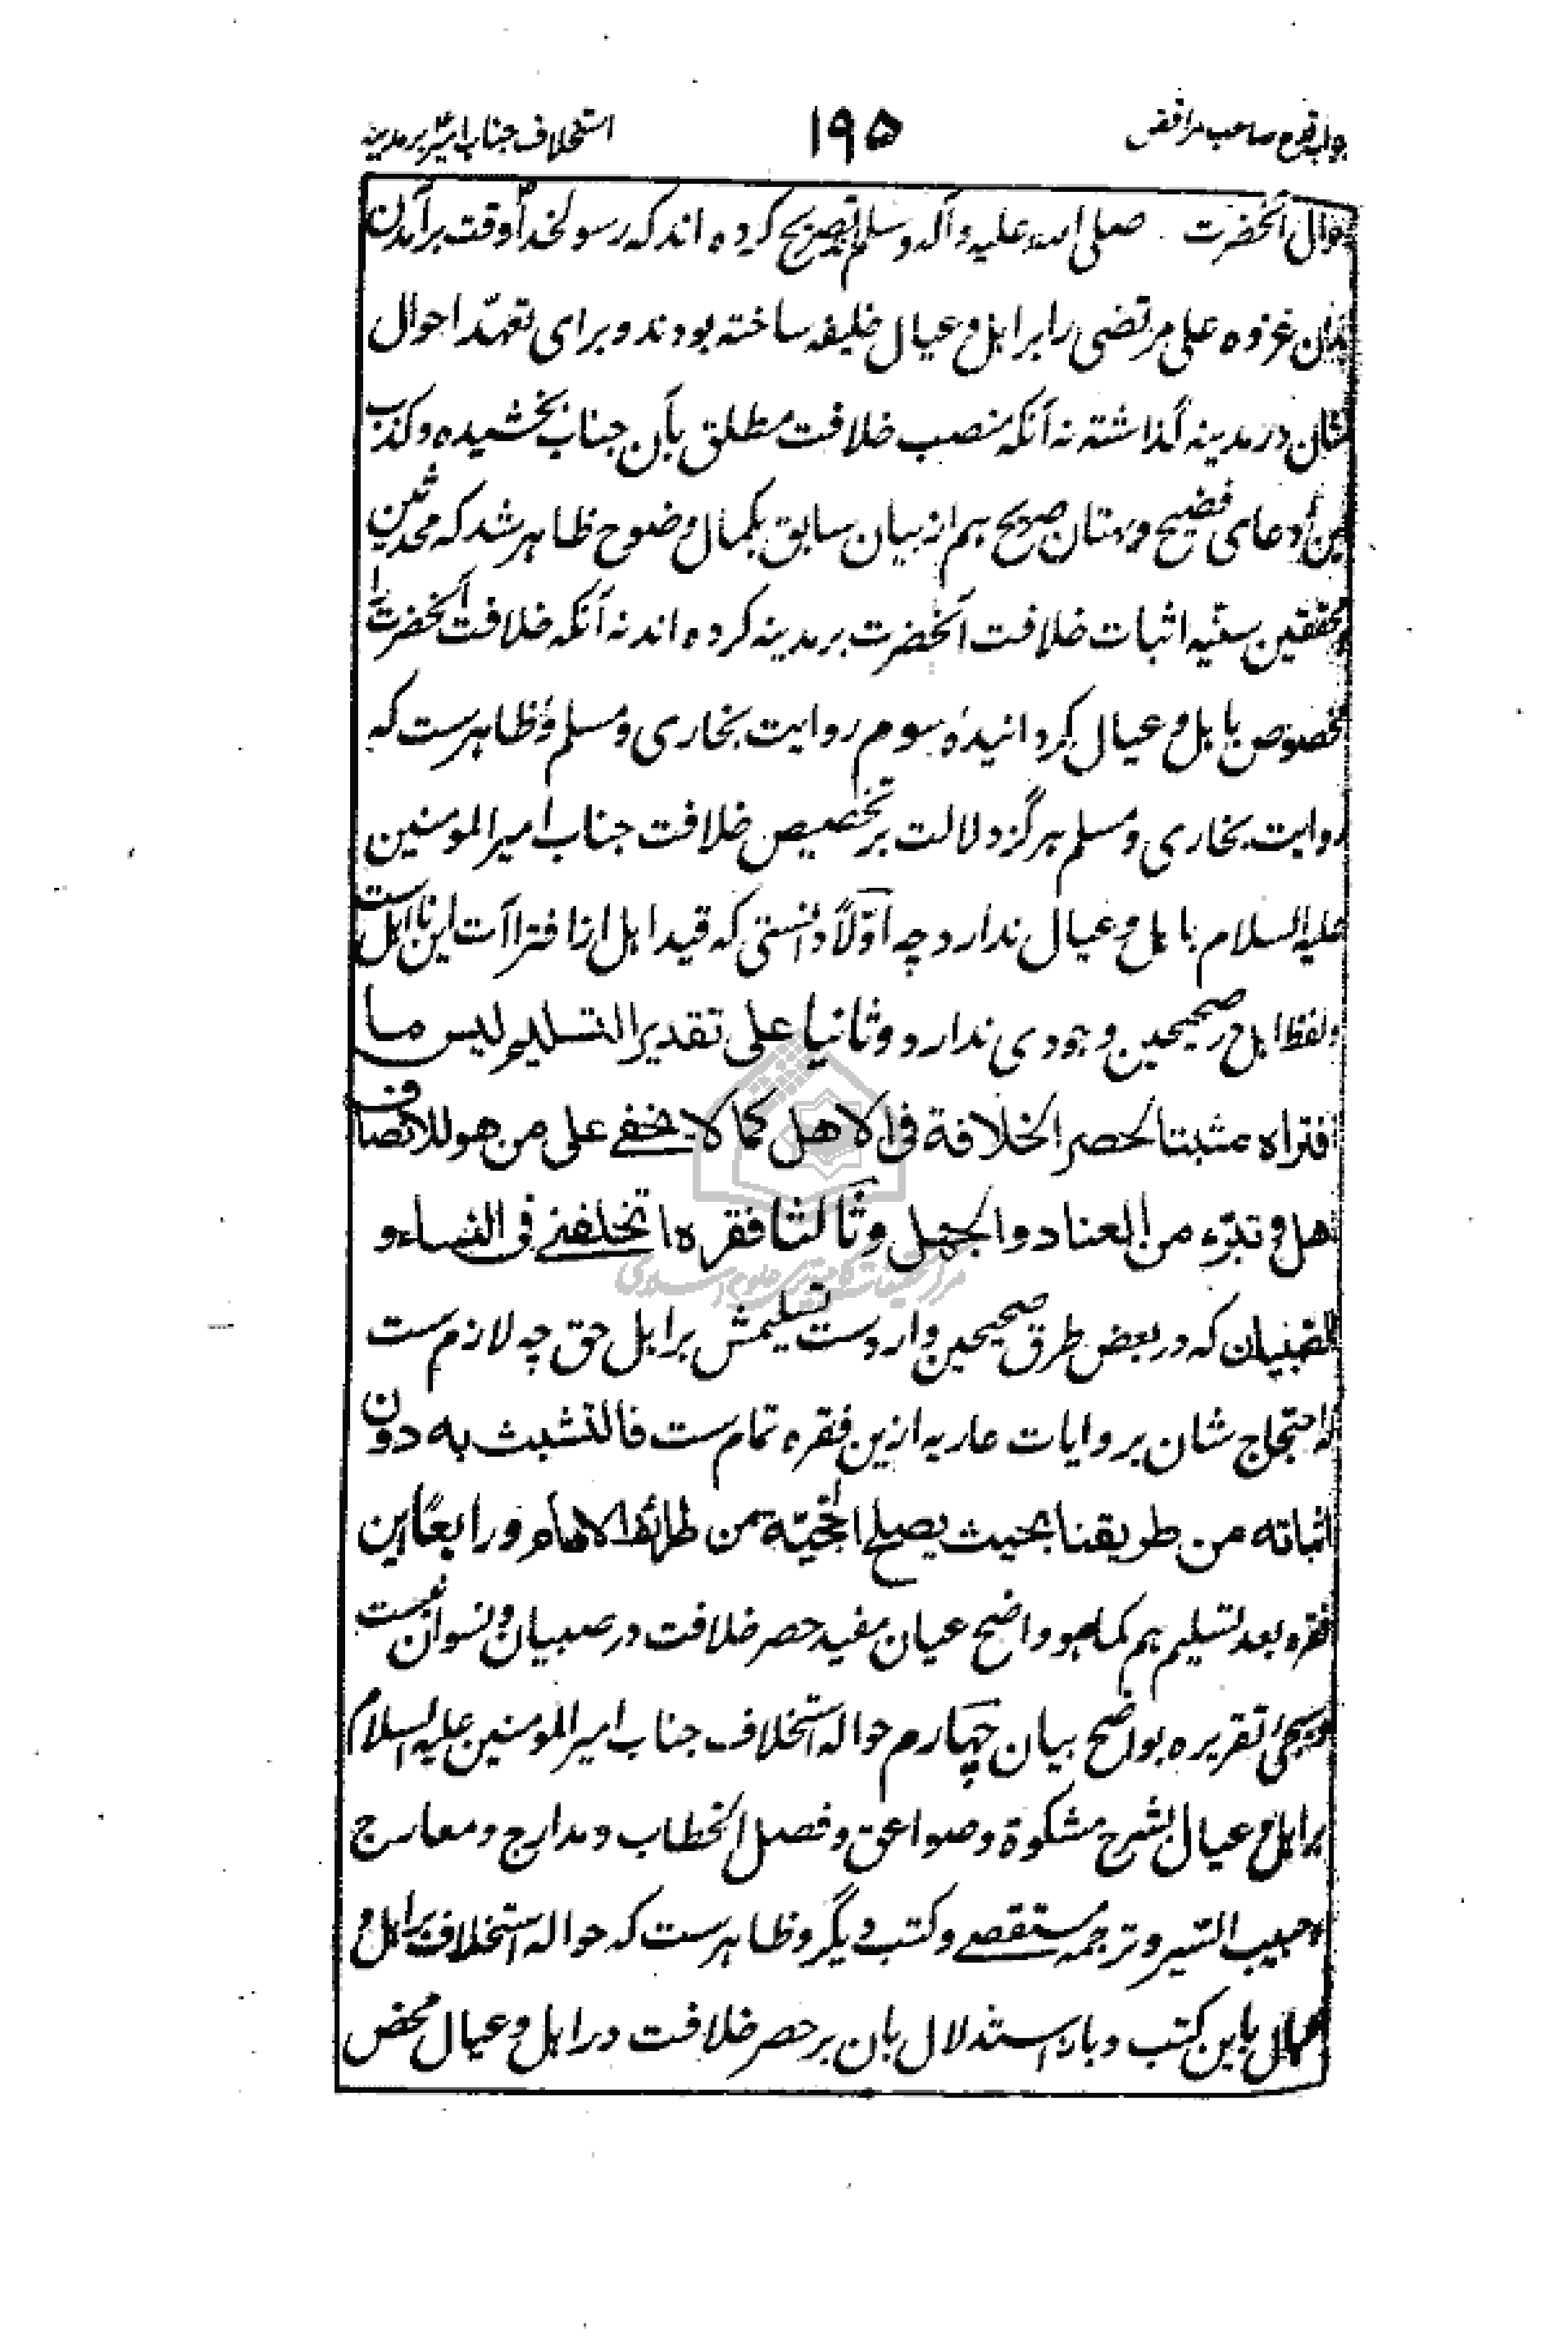 جواب قدح صاحب مرافض ١٩٥ استخلاف جناب امیرؑ بر مدینہ
احوال آنحضرت صلی اللہ علیہ وآلہ وسلم تصریح کردہ اند کہ رسولخداؐ وقت برآمدن
بدان غزوہ علی مرتضی را بر اہل و عیال خلیفہ ساختہ بودند و برای تعہّد احوال
شان در مدینہ گذاشتہ نہ آنکہ منصب خلافت مطلق بآن جناب بخشیدہ و کذب
این ادعای فضیح و بہتان صریح ہم از بیان سابق بکمال وضوح ظاہر شد کہ محدثین
و محققین سنّیہ اثبات خلافت آنحضرت بر مدینہ کردہ اند نہ آنکہ خلافت آنحضرت را
مخصوص باہل و عیال گردانیدہ سوم روایت بخاری و مسلم و ظاہرست کہ
روایت بخاری و مسلم ہرگز دلالت بر تخصیص خلافت جناب امیر المومنین
علیہ السلام باہل و عیال ندارد چہ اوّلاً دانستی کہ قید اہل از افتراآت این نااہل ست
و لفظ اہل در صحیحین وجودی ندارد و ثانیا علی تقدیر التسلیم لیس ما
افتراہ مثبتا لحصر الخلافة فی الاهل کما لا یخفی علی من هو للانصاف
اهل و تبرّء من العناد والجهل و ثالثا فقرہ اتخلفنی فی النساء و
الصبیان کہ در بعض طرق صحیحین واردست تسلیمش بر اہل حق چہ لازم ست
کہ احتجاج شان بروایات عاریہ ازین فقرہ تمام ست فالتشبث به دون
اثباته من طریقنا بحیث یصلح للحجیّة من طرائف الاوهام و رابعًا این
فقرہ بعد تسلیم ہم کما ہو واضح عیان مفید حصر خلافت در صبیان و نسوان نیست
و سیجئ تقریرہ بواضح بیان چہارم حوالہ استخلاف جناب امیر المومنین علیہ السلام
بر اہل و عیال بشرح مشکوة و صواعق و فصل الخطاب و مدارج و معارج
و حبیب السّیر و ترجمہ مستقصی و کتب دیگر و ظاہرست کہ حوالہ استخلاف بر اہل و
عیال باین کتب و باز استدلال بآن بر حصر خلافت در اہل و عیال محض